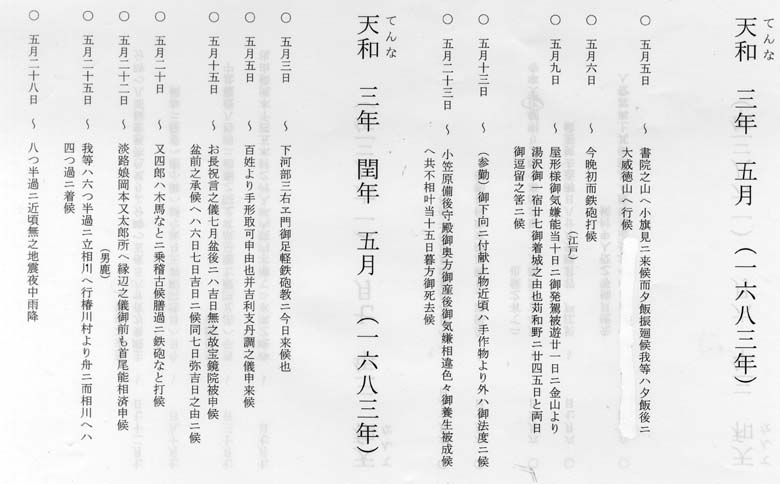 てんな
天和　三年　五月　（一六八三年）
〇　五月五日　～　書院之山へ小旗見ニ来候而夕飯振廻候我等ハ夕飯後ニ
大威徳山へ行候
〇　五月六日　～　今晩初而鉄砲打候
（江戸）
〇　五月九日　～　屋形様御気嫌能当十日ニ御発駕被遊廿一日ニ金山より
湯沢御一宿廿七御着城之由也苅和野ニ廿四五日と両日
御逗留之筈ニ候
〇　五月十三日　～　（参勤）御下向ニ付献上物近頃ハ手作物より外ハ御法度ニ候
〇　五月二十三日　～　小笠原備後守殿御奥方御産後御気嫌相違色々御養生被成候
へ共不相叶当十五日暮方御死去候
てんな
天和　三年　閏年　五月　（一六八三年）
〇　五月三日　～　下河部三右ヱ門御足軽鉄砲教ニ今日来候也
〇　五月五日　～　百姓より手形取可申由也并吉利支丹調之儀申来候
〇　五月十五日　～　お長祝言之儀七月盆後ニハ吉日無之故宝鏡院被申候
盆前之承候へハ六日七日吉日ニ候同七日弥吉日之由ニ候
〇　五月二十日　～　又四郎ハ木馬なとニ乗稽古候膳過ニ鉄砲なと打候
〇　五月二十二日　～　淡路娘岡本又太郎所へ縁辺之儀御前も首尾能相済申候
（男鹿）
〇　五月二十五日　～　我等ハ六つ半過ニ立相川へ行椿川村より舟ニ而相川へハ
四つ過ニ着候
〇　五月二十八日　～　八つ半過ニ近頃無之地震夜中雨降